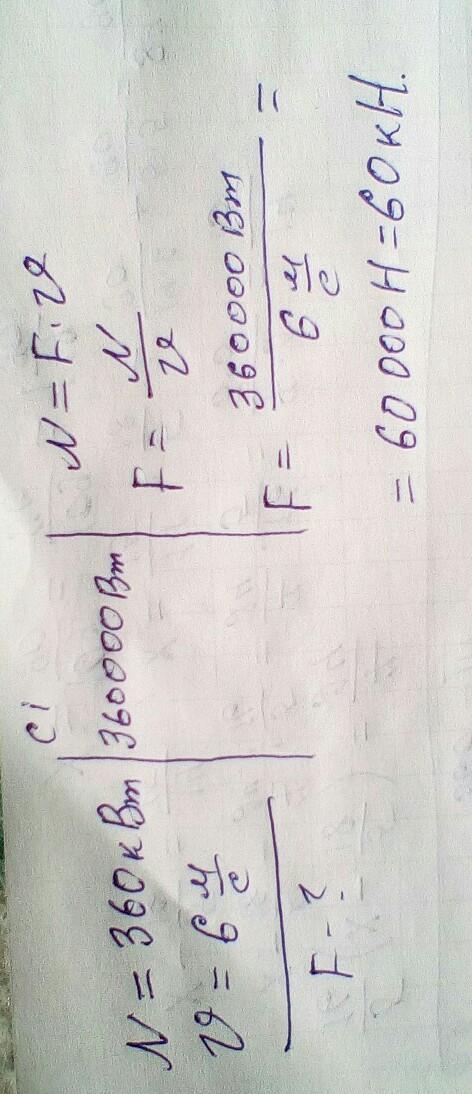 N = 360 кВт
υ = 6 м/с
F - ?
Сі
360000 Вт
N = F · υ
F = N/υ
F = 3600000 Вт / 6 м/с =
= 60 000 Н = 60 кН.